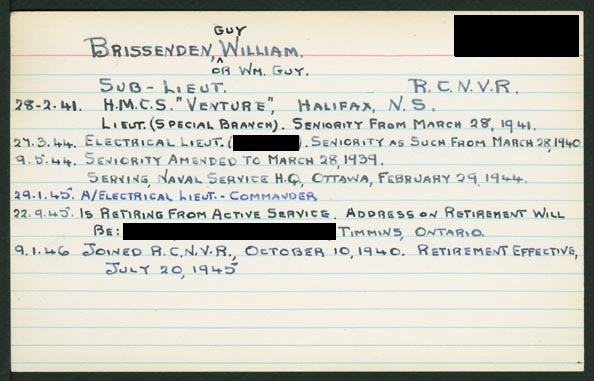 GUY
BRISSENDEN, ^ WILLIAM.
OR WM. GUY.
SUB-LIEUT. R.C.N.V.R.
28-2-41. H.M.C.S. "VENTURE", HALIFAX, N.S.
LIEUT. (SPECIAL BRANCH). SENIORITY FROM MARCH 28, 1941.
27.3.44. ELECTRICAL LIEUT. ( ). SENIORITY AS SUCH FROM MARCH 28, 1940
9.5.44. SENIORITY AMENDED TO MARCH 28, 1939.
SERVING, NAVAL SERVICE H.Q., OTTAWA, FEBRUARY 29, 1944.
29.1.45. A/ELECTRICAL LIEUT.-COMMANDER
22.9.45. IS RETIRING FROM ACTIVE SERVICE. ADDRESS ON RETIREMENT WILL
BE: TIMMINS, ONTARIO.
9.1.46 JOINED R.C.N.V.R., OCTOBER 10, 1940. RETIREMENT EFFECTIVE,
JULY 20, 1945